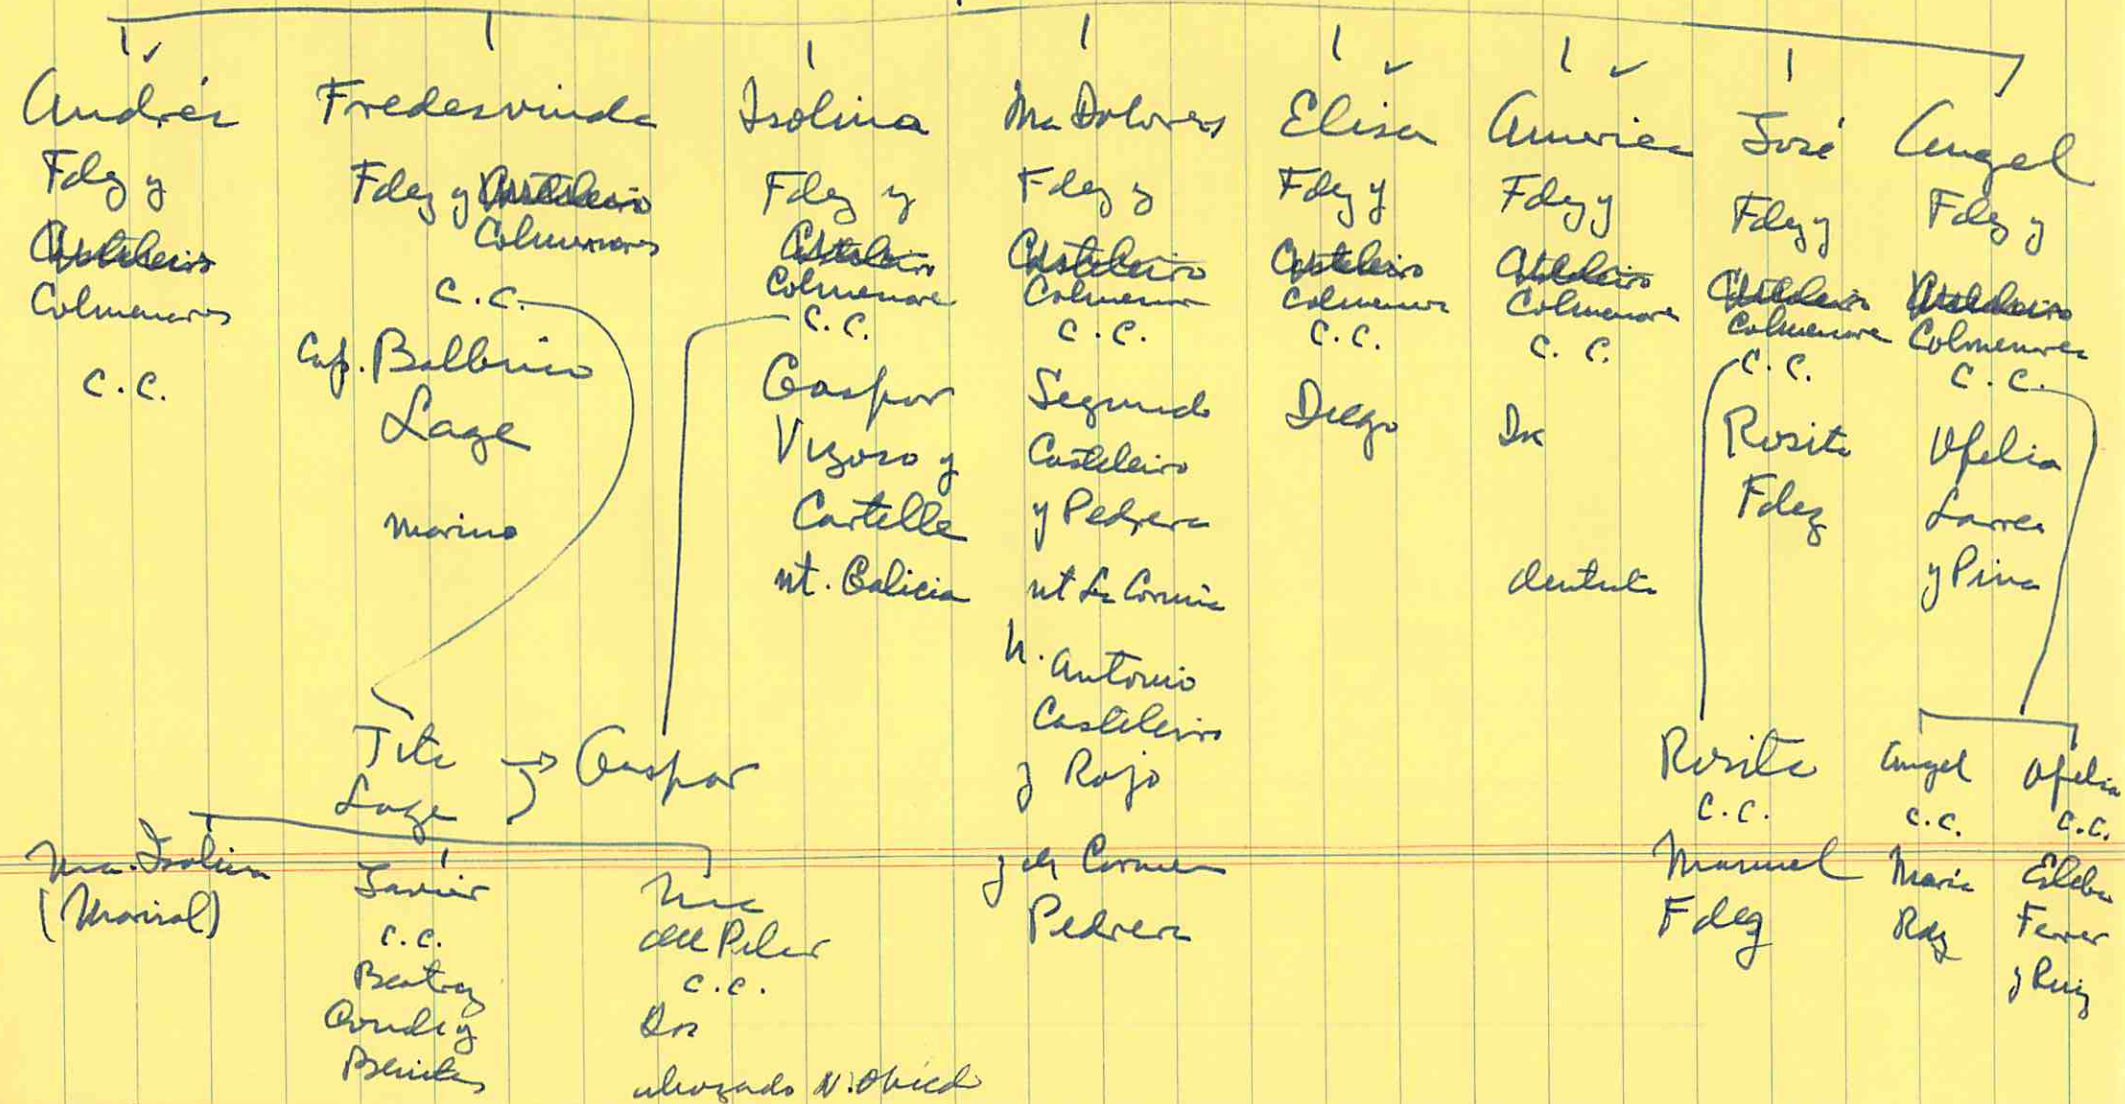 Andrés
Fdez y
Casteleiro
Colmenares
C.C.
Fredesvinda
Fdez y Casteleiro
Colmenares
C.C.
Cap. Balbino
Lage
marino
Isolina
Fdez y
Casteleiro
Colmenares
C.C.
Gaspar
Vizoso y
Cartelle
nt. Galicia
Ma Dolores
Fdez y
Casteleiro
Colmenares
C.C.
Segundo
Casteleiro
y Pedrera
nt La Coruña
h. Antonio
Casteleiro
y Rojo
y de Carmen
Pedrera
Elisa
Fdez y
Casteleiro
Colmenares
C.C.
Diego
America
Fdez y
Casteleiro
Colmenares
C.C.
Dr
dentista
José
Fdez y
Casteleiro
Colmenares
C.C.
Rosita
Fdez
Angel
Fdez y
Casteleiro
Colmenares
C.C.
Ofelia
Larrea
y Pina
Tite
Lage
Gaspar
Ma. Isolina
(Marisol)
Javier
C.C.
Beatriz
Conde y
Benitez
Ma
del Pilar
C.C.
Dr
abogado N. Oviedo
Rosita
C.C.
Manuel
Fdez
Angel
C.C.
Maria
Rdz
Ofelia
C.C.
Esteban
Ferrer
y Ruiz